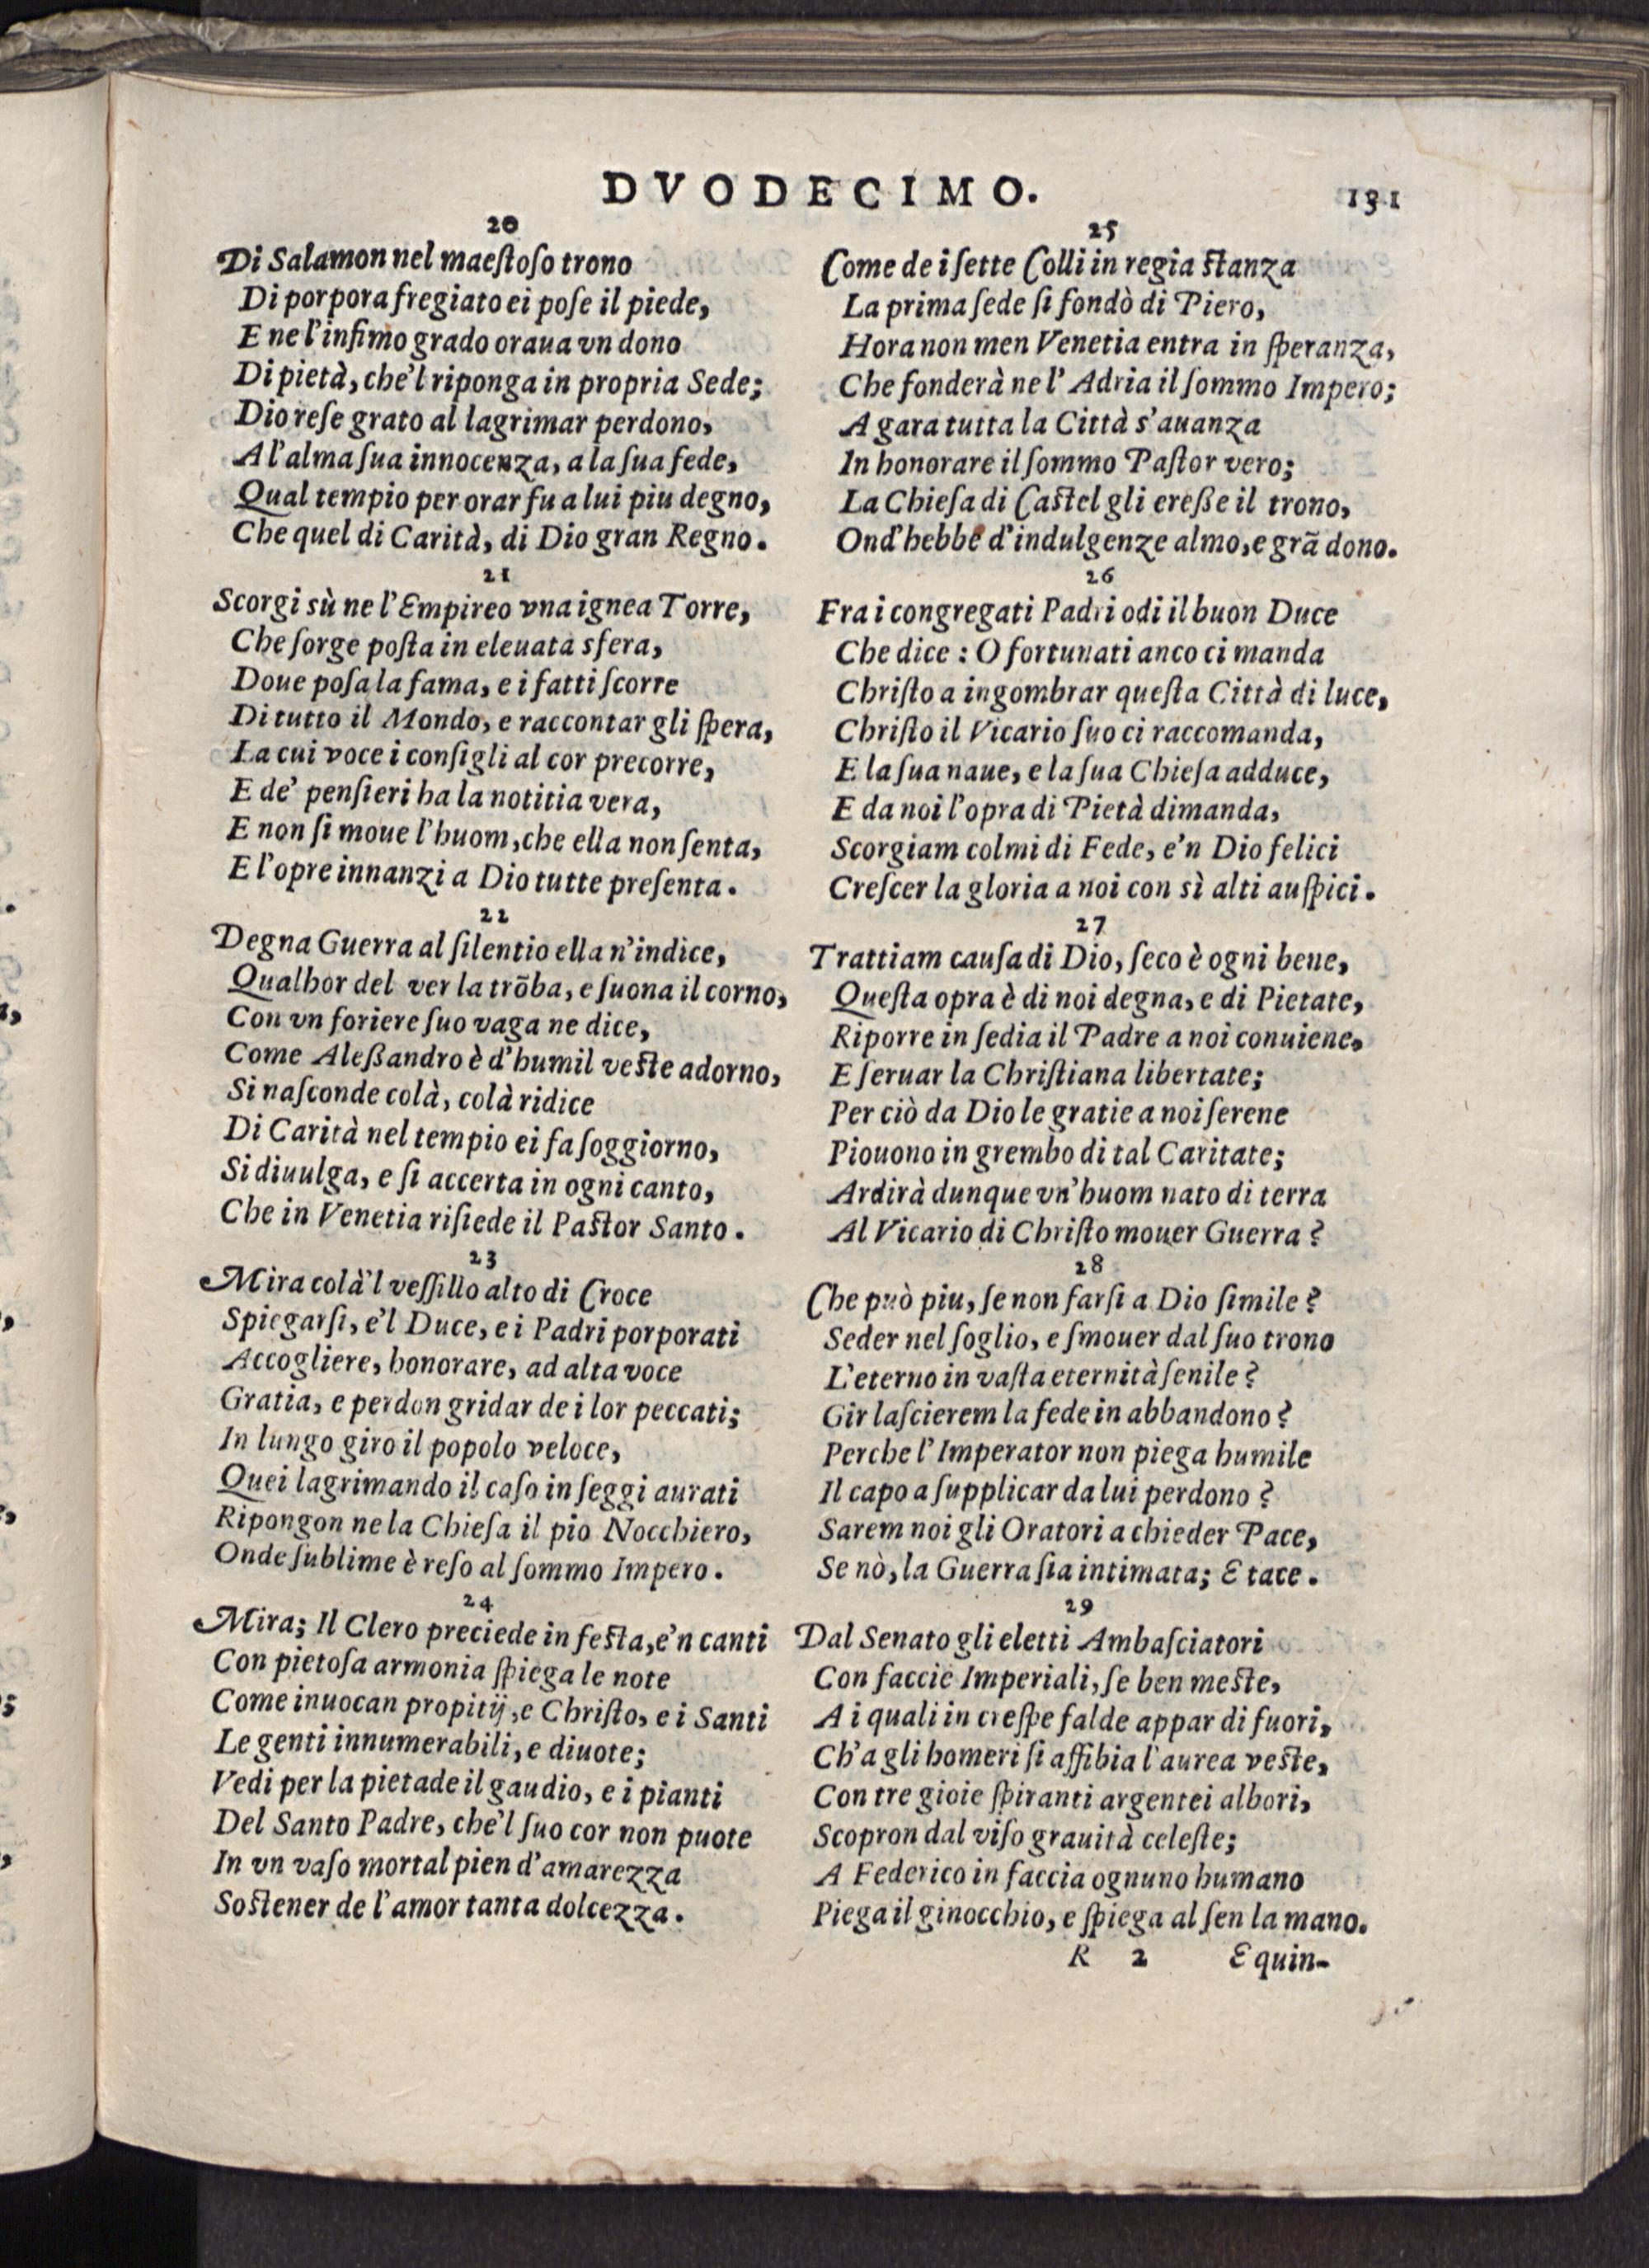 DVODECIMO.
131
20
Di Salamon nel maeſtoſo trono
Di porpora fregiato ei poſe il piede,
E ne l'infimo grado oraua vn dono
Di pietà, che'l riponga in propria Sede;
Dio reſe grato al lagrimar perdono,
A l'alma ſua innocenza, a la ſua fede,
Qual tempio per orar fu a lui piu degno,
Che quel di Carità, di Dio gran Regno.
21
Scorgi sù ne l'Empireo vna ignea Torre,
Che ſorge poſta in eleuata sfera,
Doue poſa la fama, e i fatti ſcorre
Di tutto il Mondo, e raccontar gli ſpera,
La cui voce i conſigli al cor precorre,
E de' penſieri ha la notitia vera,
E non ſi moue l'huom, che ella non ſenta,
E l'opre innanzi a Dio tutte preſenta.
22
Degna Guerra al ſilentio ella n'indice,
Qualhor del ver la trõba, e ſuona il corno,
Con vn foriere ſuo vaga ne dice,
Come Aleßandro è d'humil veſte adorno,
Si naſconde colà, colà ridice
Di Carità nel tempio ei fa ſoggiorno,
Si diuulga, e ſi accerta in ogni canto,
Che in Venetia riſiede il Paſtor Santo.
23
Mira colà'l veſſillo alto di Croce
Spiegarſi, e'l Duce, e i Padri porporati
Accogliere, honorare, ad alta voce
Gratia, e perdon gridar de i lor peccati;
In lungo giro il popolo veloce,
Quei lagrimando il caſo in ſeggi aurati
Ripongon ne la Chieſa il pio Nocchiero,
Onde ſublime è reſo al ſommo Impero.
24
Mira; Il Clero preciede in feſta, e'n canti
Con pietoſa armonia ſpiega le note
Come inuocan propitij, e Chriſto, e i Santi
Le genti innumerabili, e diuote;
Vedi per la pietade il gaudio, e i pianti
Del Santo Padre, che'l ſuo cor non puote
In vn vaſo mortal pien d'amarezza
Soſtener de l'amor tanta dolcezza.
25
Come de i ſette Colli in regia ſtanza
La prima ſede ſi fondò di Piero,
Hora non men Venetia entra in ſperanza,
Che fonderà ne l'Adria il ſommo Impero;
A gara tutta la Città s'auanza
In honorare il ſommo Paſtor vero;
La Chieſa di Caſtel gli ereße il trono,
Ond'hebbe d'indulgenze almo, e grã dono.
26
Fra i congregati Padri odi il buon Duce
Che dice: O fortunati anco ci manda
Chriſto a ingombrar queſta Città di luce,
Chriſto il Vicario ſuo ci raccomanda,
E la ſua naue, e la ſua Chieſa adduce,
E da noi l'opra di Pietà dimanda,
Scorgiam colmi di Fede, e'n Dio felici
Creſcer la gloria a noi con sì alti auſpici.
27
Trattiam cauſa di Dio, ſeco è ogni bene,
Queſta opra è di noi degna, e di Pietate,
Riporre in ſedia il Padre a noi conuiene,
E ſeruar la Chriſtiana libertate;
Per ciò da Dio le gratie a noi ſerene
Piouono in grembo di tal Caritate;
Ardirà dunque vn'huom nato di terra
Al Vicario di Chriſto mouer Guerra?
28
Che può piu, ſe non farſi a Dio ſimile?
Seder nel ſoglio, e ſmouer dal ſuo trono
L'eterno in vaſta eternità ſenile?
Gir laſcierem la fede in abbandono?
Perche l'Imperator non piega humile
Il capo a ſupplicar da lui perdono?
Sarem noi gli Oratori a chieder Pace,
Se nò, la Guerra ſia intimata; E tace.
29
Dal Senato gli eletti Ambaſciatori
Con faccie Imperiali, ſe ben meſte,
A i quali in creſpe falde appar di fuori,
Ch'a gli homeri ſi affibia l'aurea veſte,
Con tre gioie ſpiranti argentei albori,
Scopron dal viſo grauità celeſte;
A Federico in faccia ognuno humano
Piega il ginocchio, e ſpiega al ſen la mano.
R 2
E quin-